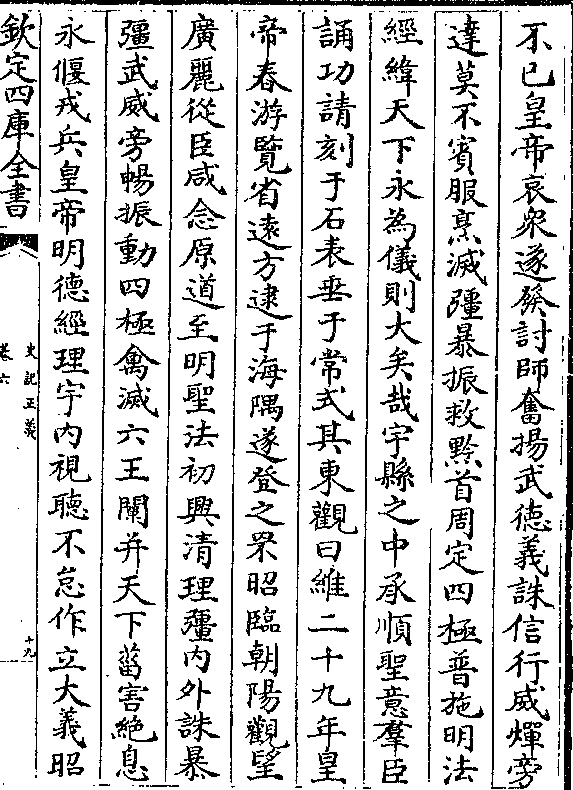 不已皇帝哀衆遂發討師奮揚武德義誅信行威燀旁
達莫不賓服烹滅彊暴振救黔首周定四極普施明法
經緯天下永為儀則大矣哉宇縣之中承順聖意羣臣
誦功請刻于石表垂于常式其東觀曰維二十九年皇
帝春游覽省遠方逮于海隅遂登之罘昭臨朝陽觀望
廣麗從臣咸念原道至明聖法初興清理疆内外誅暴
彊武威旁暢振動四極禽滅六王闡并天下菑害絶息
永偃戎兵皇帝明德經理宇内視聽不怠作立大義昭
欽定四庫全書
史記正義
卷六
十九